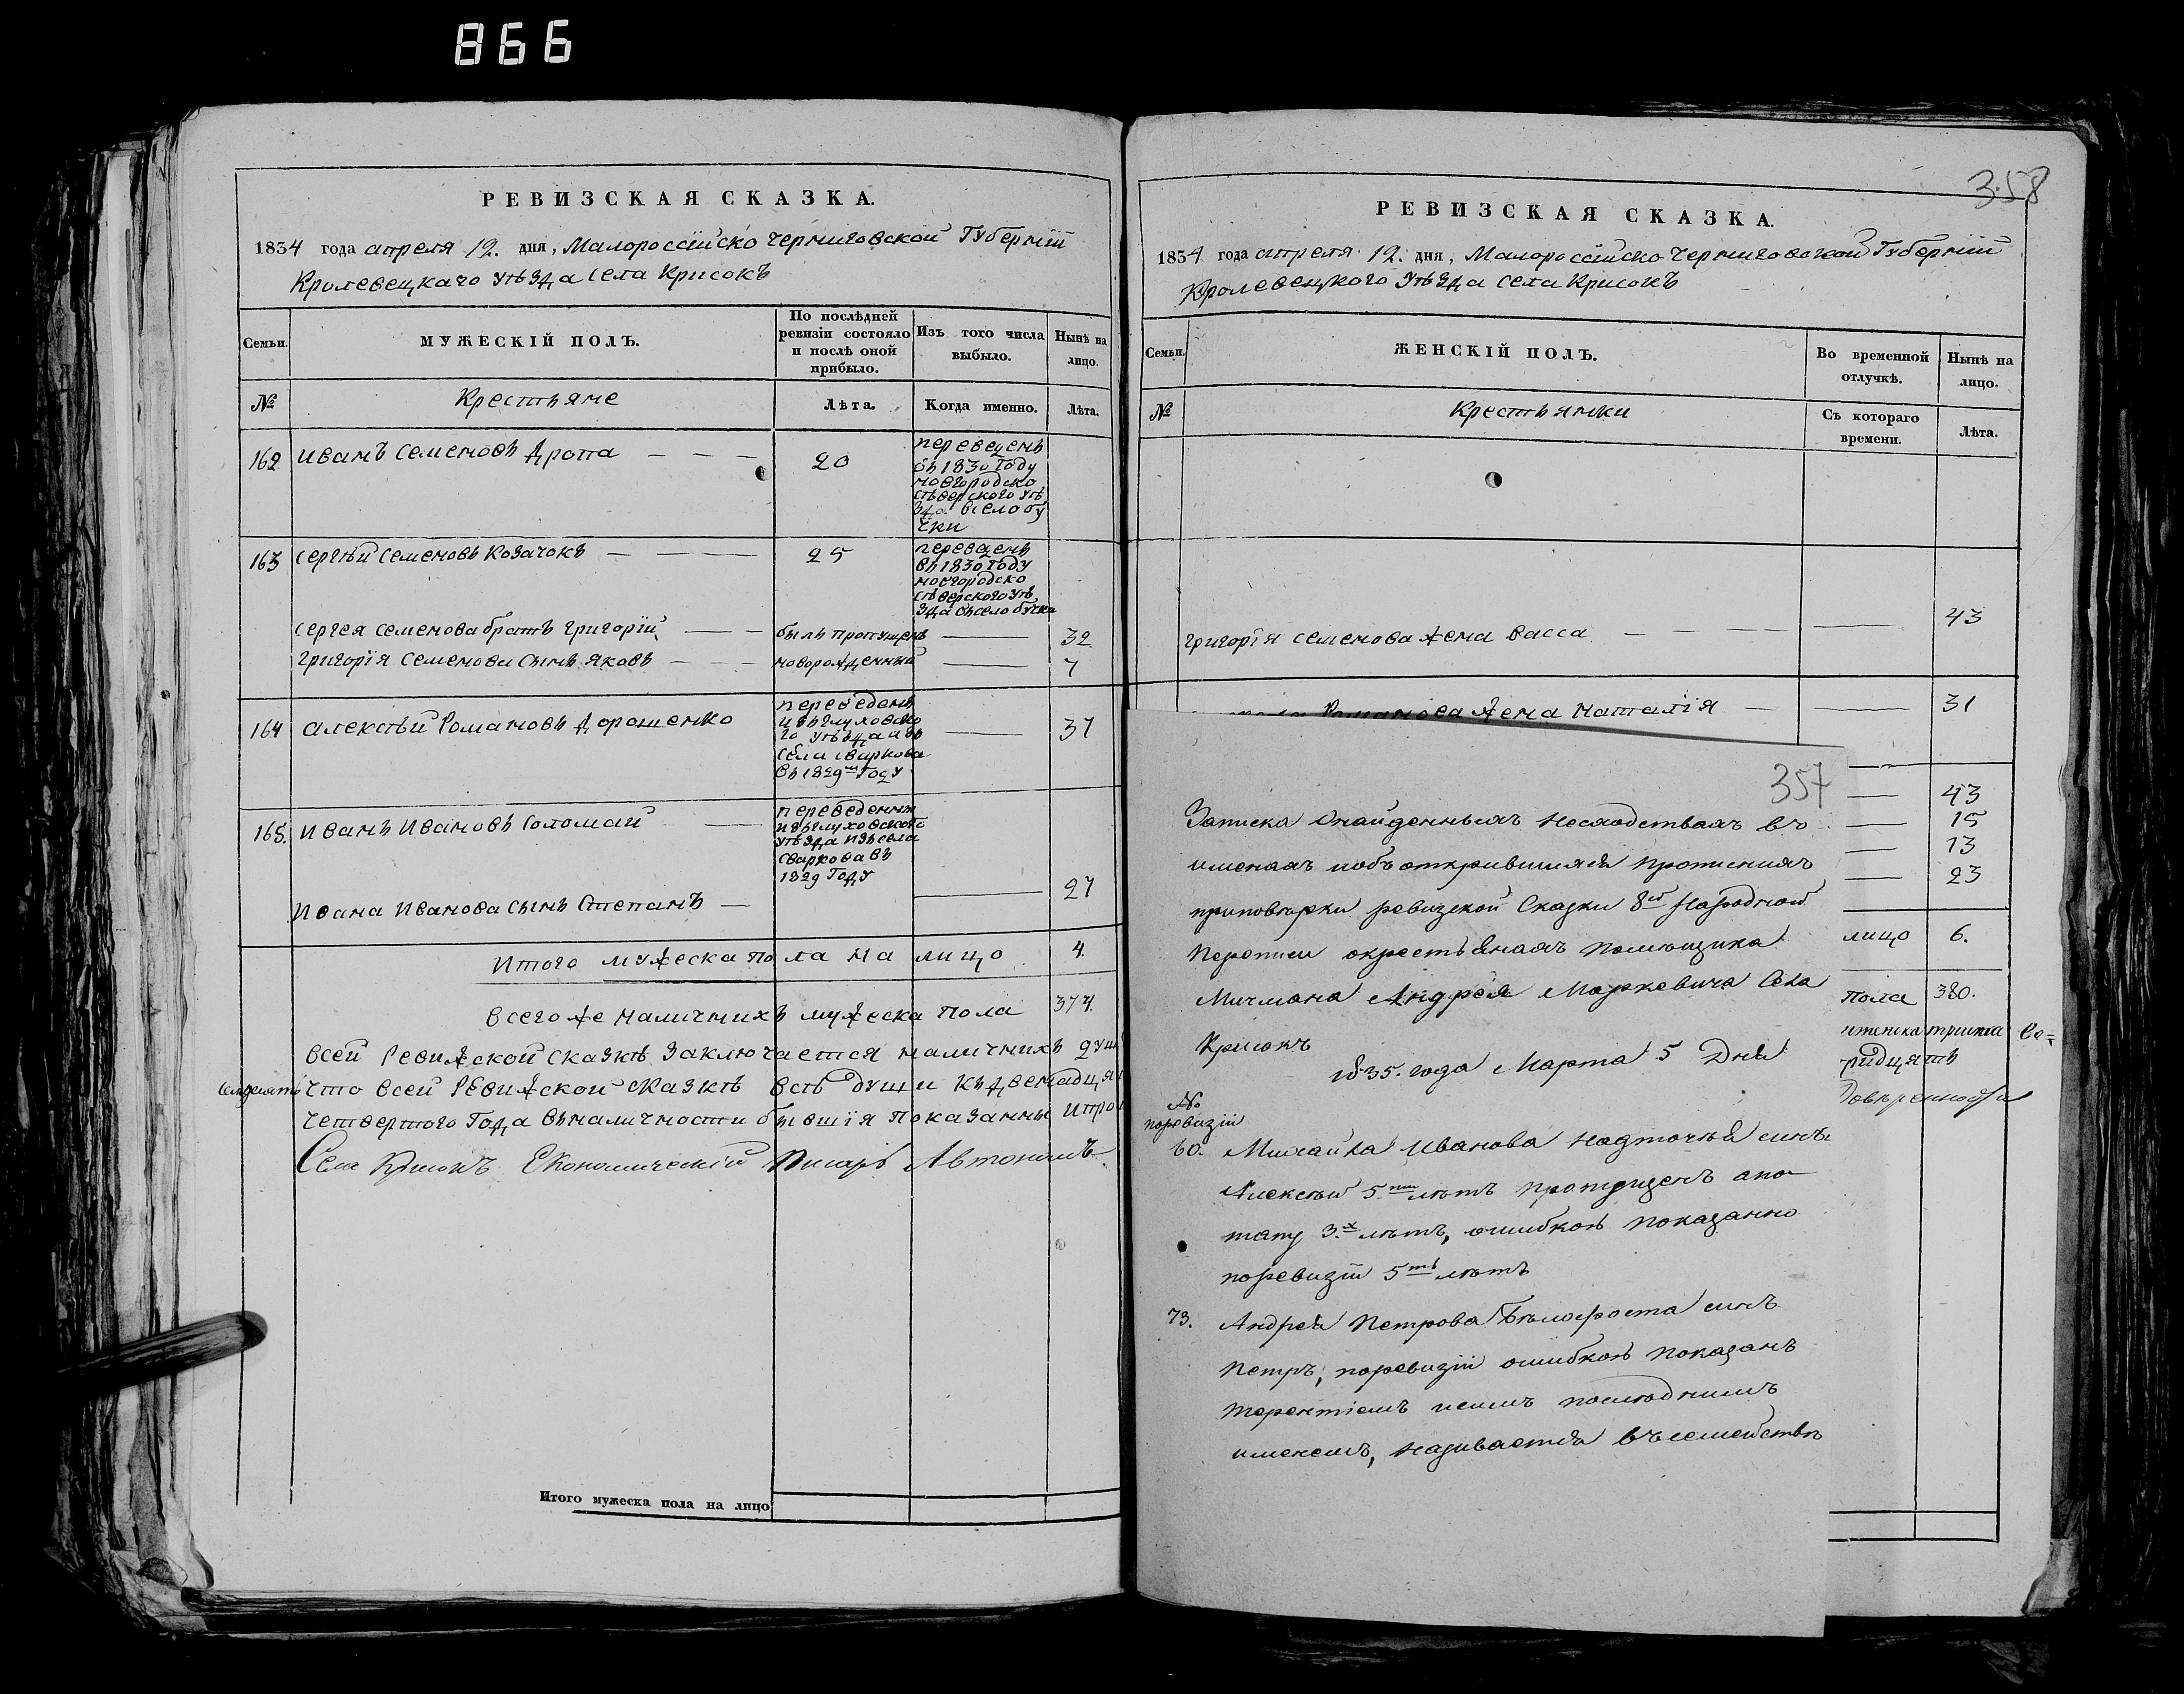 866
РЕВИЗСКАЯ СКАЗКА.
1834 года апреля 12. дня, Малороссійско Черниговской Губерніи
Кролевецкаго уѣзда села Крисокъ
Семьи.
МУЖЕСКІЙ ПОЛЪ.
По послѣдней ревизіи состояло и послѣ оной прибыло.
Изъ того числа выбыло.
Нынѣ на лицо.
№
Крестьяне
Лѣта.
Когда именно.
Лѣта.
162 Иванъ Семеновъ Дропа 20
переведенъ
въ 1830 году
новгородско
сѣверского уѣ
зда в село бу
чки
163 Сергѣй Семеновъ Козачокъ 25
переведенъ
въ 1830 году
новгородско
сѣверского уѣ
зда въ село бучки
Сергея Семенова братъ Григорій былъ пропущенъ 32
Григорія Семенова сынъ Яковъ новорожденный 7
164 Алексѣй Романовъ Дорошенко 37
переведенъ
изъ глуховско
го уѣзда изъ
села Сваркова
въ 1829м году
165. Иванъ Ивановъ Соломай
переведенны
изъ глуховского
уѣзда изъ села
Сваркова въ
1829 году
Ивана Иванова сынъ Степанъ 27
Итого мужеска пола на лицо 4.
Всего же наличнихъ мужеска пола 374.
Всей ревижской сказкѣ заключается наличнихъ душ
что всей ревижской сказкѣ всѣ души къ двенадця
четвертого года въ наличности бывшія показанны и про
Села Крисокъ Економическій Писарь Автономъ.
Итого мужеска пола на лицо
358
РЕВИЗСКАЯ СКАЗКА.
1834 года апреля 12. дня, Малороссійско Черниговской Губерніи
Кролевецкого уѣзда села Крисокъ
Семьи.
ЖЕНСКІЙ ПОЛЪ.
Во временной отлучкѣ.
Нынѣ на лицо.
№
Крестьянки
Съ котораго времени.
Лѣта.
Григорія Семенова жена Васса 43
Романова жена Наталія 31
43
15
13
23
лицо 6.
пола 380.
357
Записка онайденныхъ несходствахъ въ
именахъ иобъ открившихся пропискахъ
приповѣрки ревизской Сказки 8й Народной
Переписи окрестьянахъ помѣщика
Мичмана Андрея Маркевича Села
Крисокъ
1835. года Марта 5 Дня
№
поревизіи
60. Михайла Иванова Надточья синъ
Алексѣй 5ти лѣтъ пропущенъ апо
тому 3.х лѣтъ, ошибкою показанно
поревизіи 5ть лѣтъ
73. Андрея Петрова Бѣлохроста синъ
Петръ, поревизіи ошибкою показанъ
терентіемъ исимъ послѣднимъ
именемъ, називается въсемействѣ